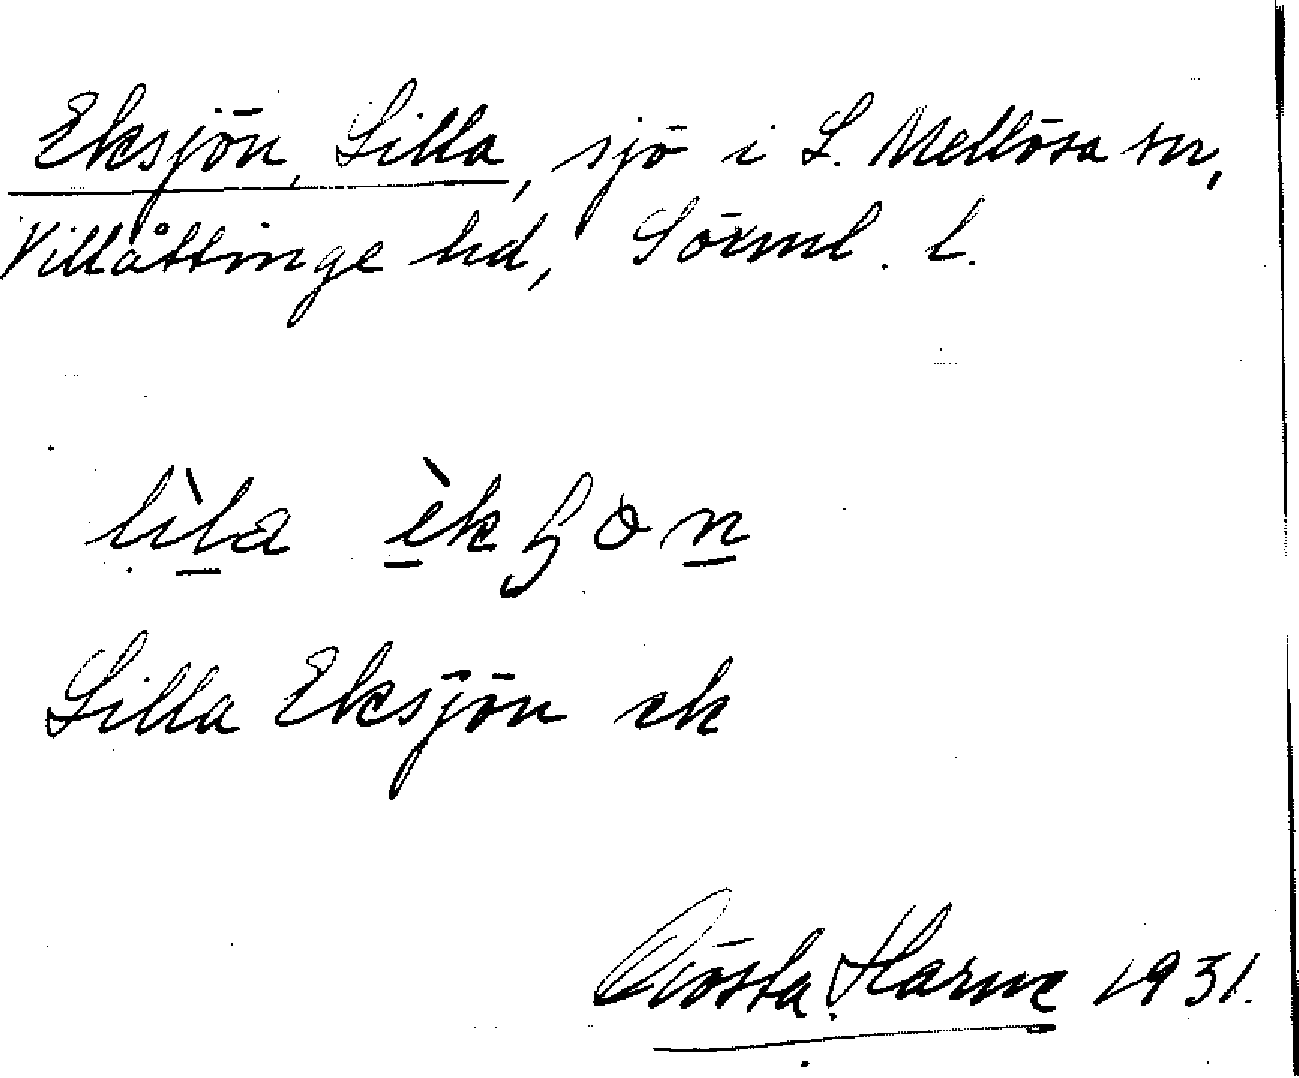 Eksjön, Lilla, sjö i L. Mellösa sn,
Villåttinge hd, Sörml. l.
lìla èkʃon
Lilla Eksjön ek
Gösta Harne 1931.